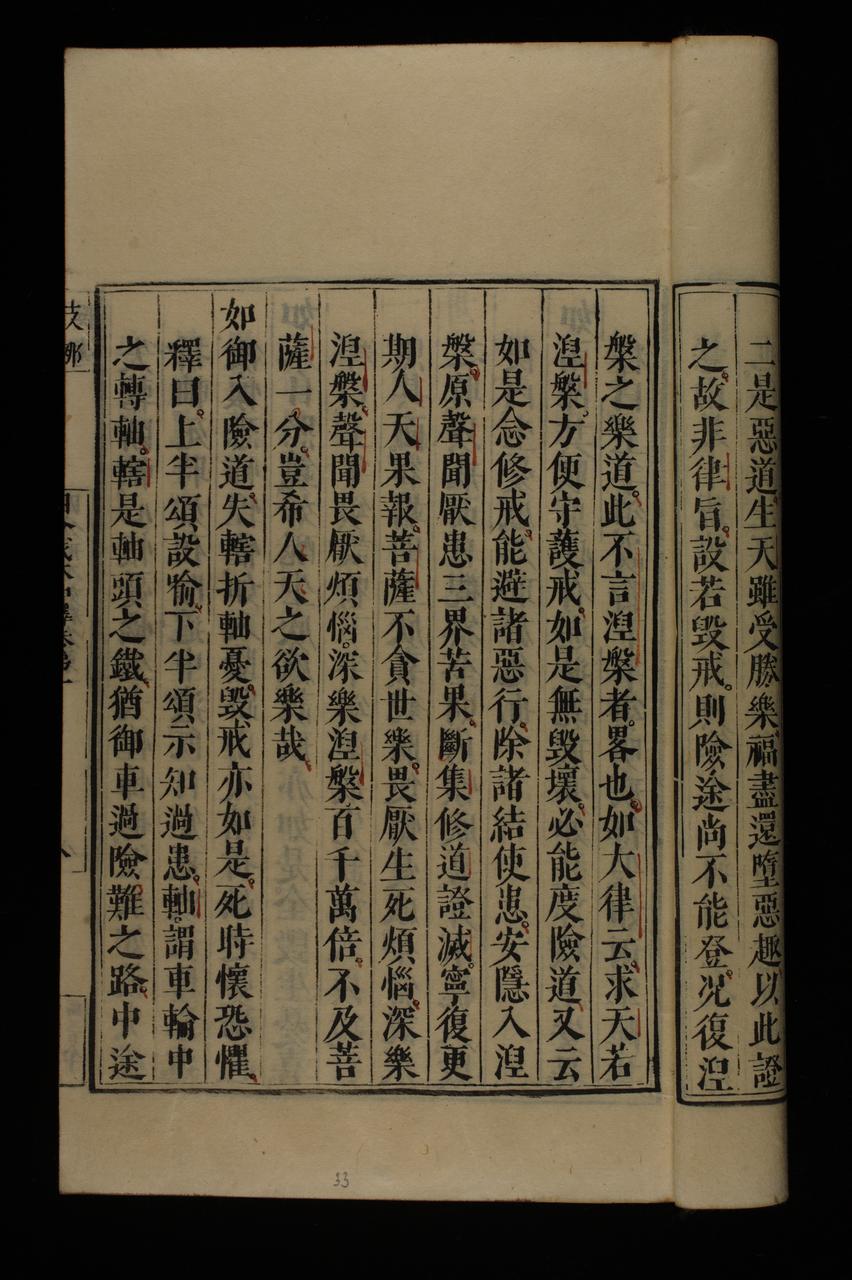 二是惡道。生天雖受勝樂。福盡還墮惡趣。以此證
之。故非律旨。設若毀戒。則險途尚不能登。况復涅
槃之樂道。此不言涅槃者。畧也。如大律云。求天若
涅槃。方便守護戒。如是無毀壞。必能度險道。又云
如是念修戒。能避諸惡行。除諸結使患。安隱入涅
槃。原聲聞厭患三界苦果。斷集修道證滅。寧復更
期人天果報。菩薩不貪世樂。畏厭生死煩惱。深樂
涅槃。聲聞畏厭煩惱。深樂涅槃。百千萬倍。不及菩
薩一分。豈希人天之欲樂哉。
如御入險道。失轄折軸憂。毀戒亦如是。死時懷恐懼。
釋曰。上半頌。設喻。下半頌。示知過患。軸。謂車輪中
之轉軸。轄是軸頭之鐵。猶御車過險難之路。中途
支那
33